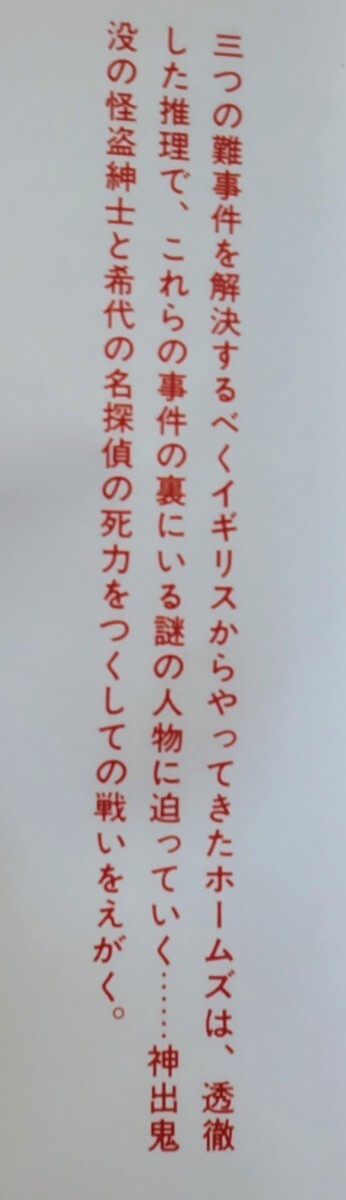 三つの難事件を解決するべくイギリスからやってきたホームズは、透徹
した推理で、これらの事件の裏にいる謎の人物に迫っていく……神出鬼
没の怪盗紳士と希代の名探偵の死力をつくしての戦いをえがく。